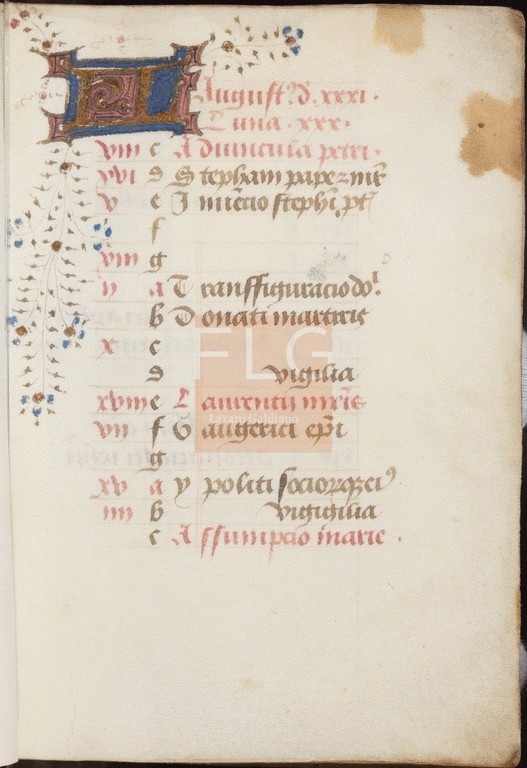 August9 d. xxxi.
Luna . xxx.
viii c Ad uincula petri.
xvi d Stephani pape z mr
v e Inuencio stephi. pt
f
viii g
ii a Transffiguracio do'.
b Donati martiris
x c
d vigilia
xviii e Laurentii mris
vii f Gaugerici epi
g
xv a ypoliti socior eiꝰ
iiii b vigigilia
c Assumpcio marie .
FLG
Lázaro Galdiano